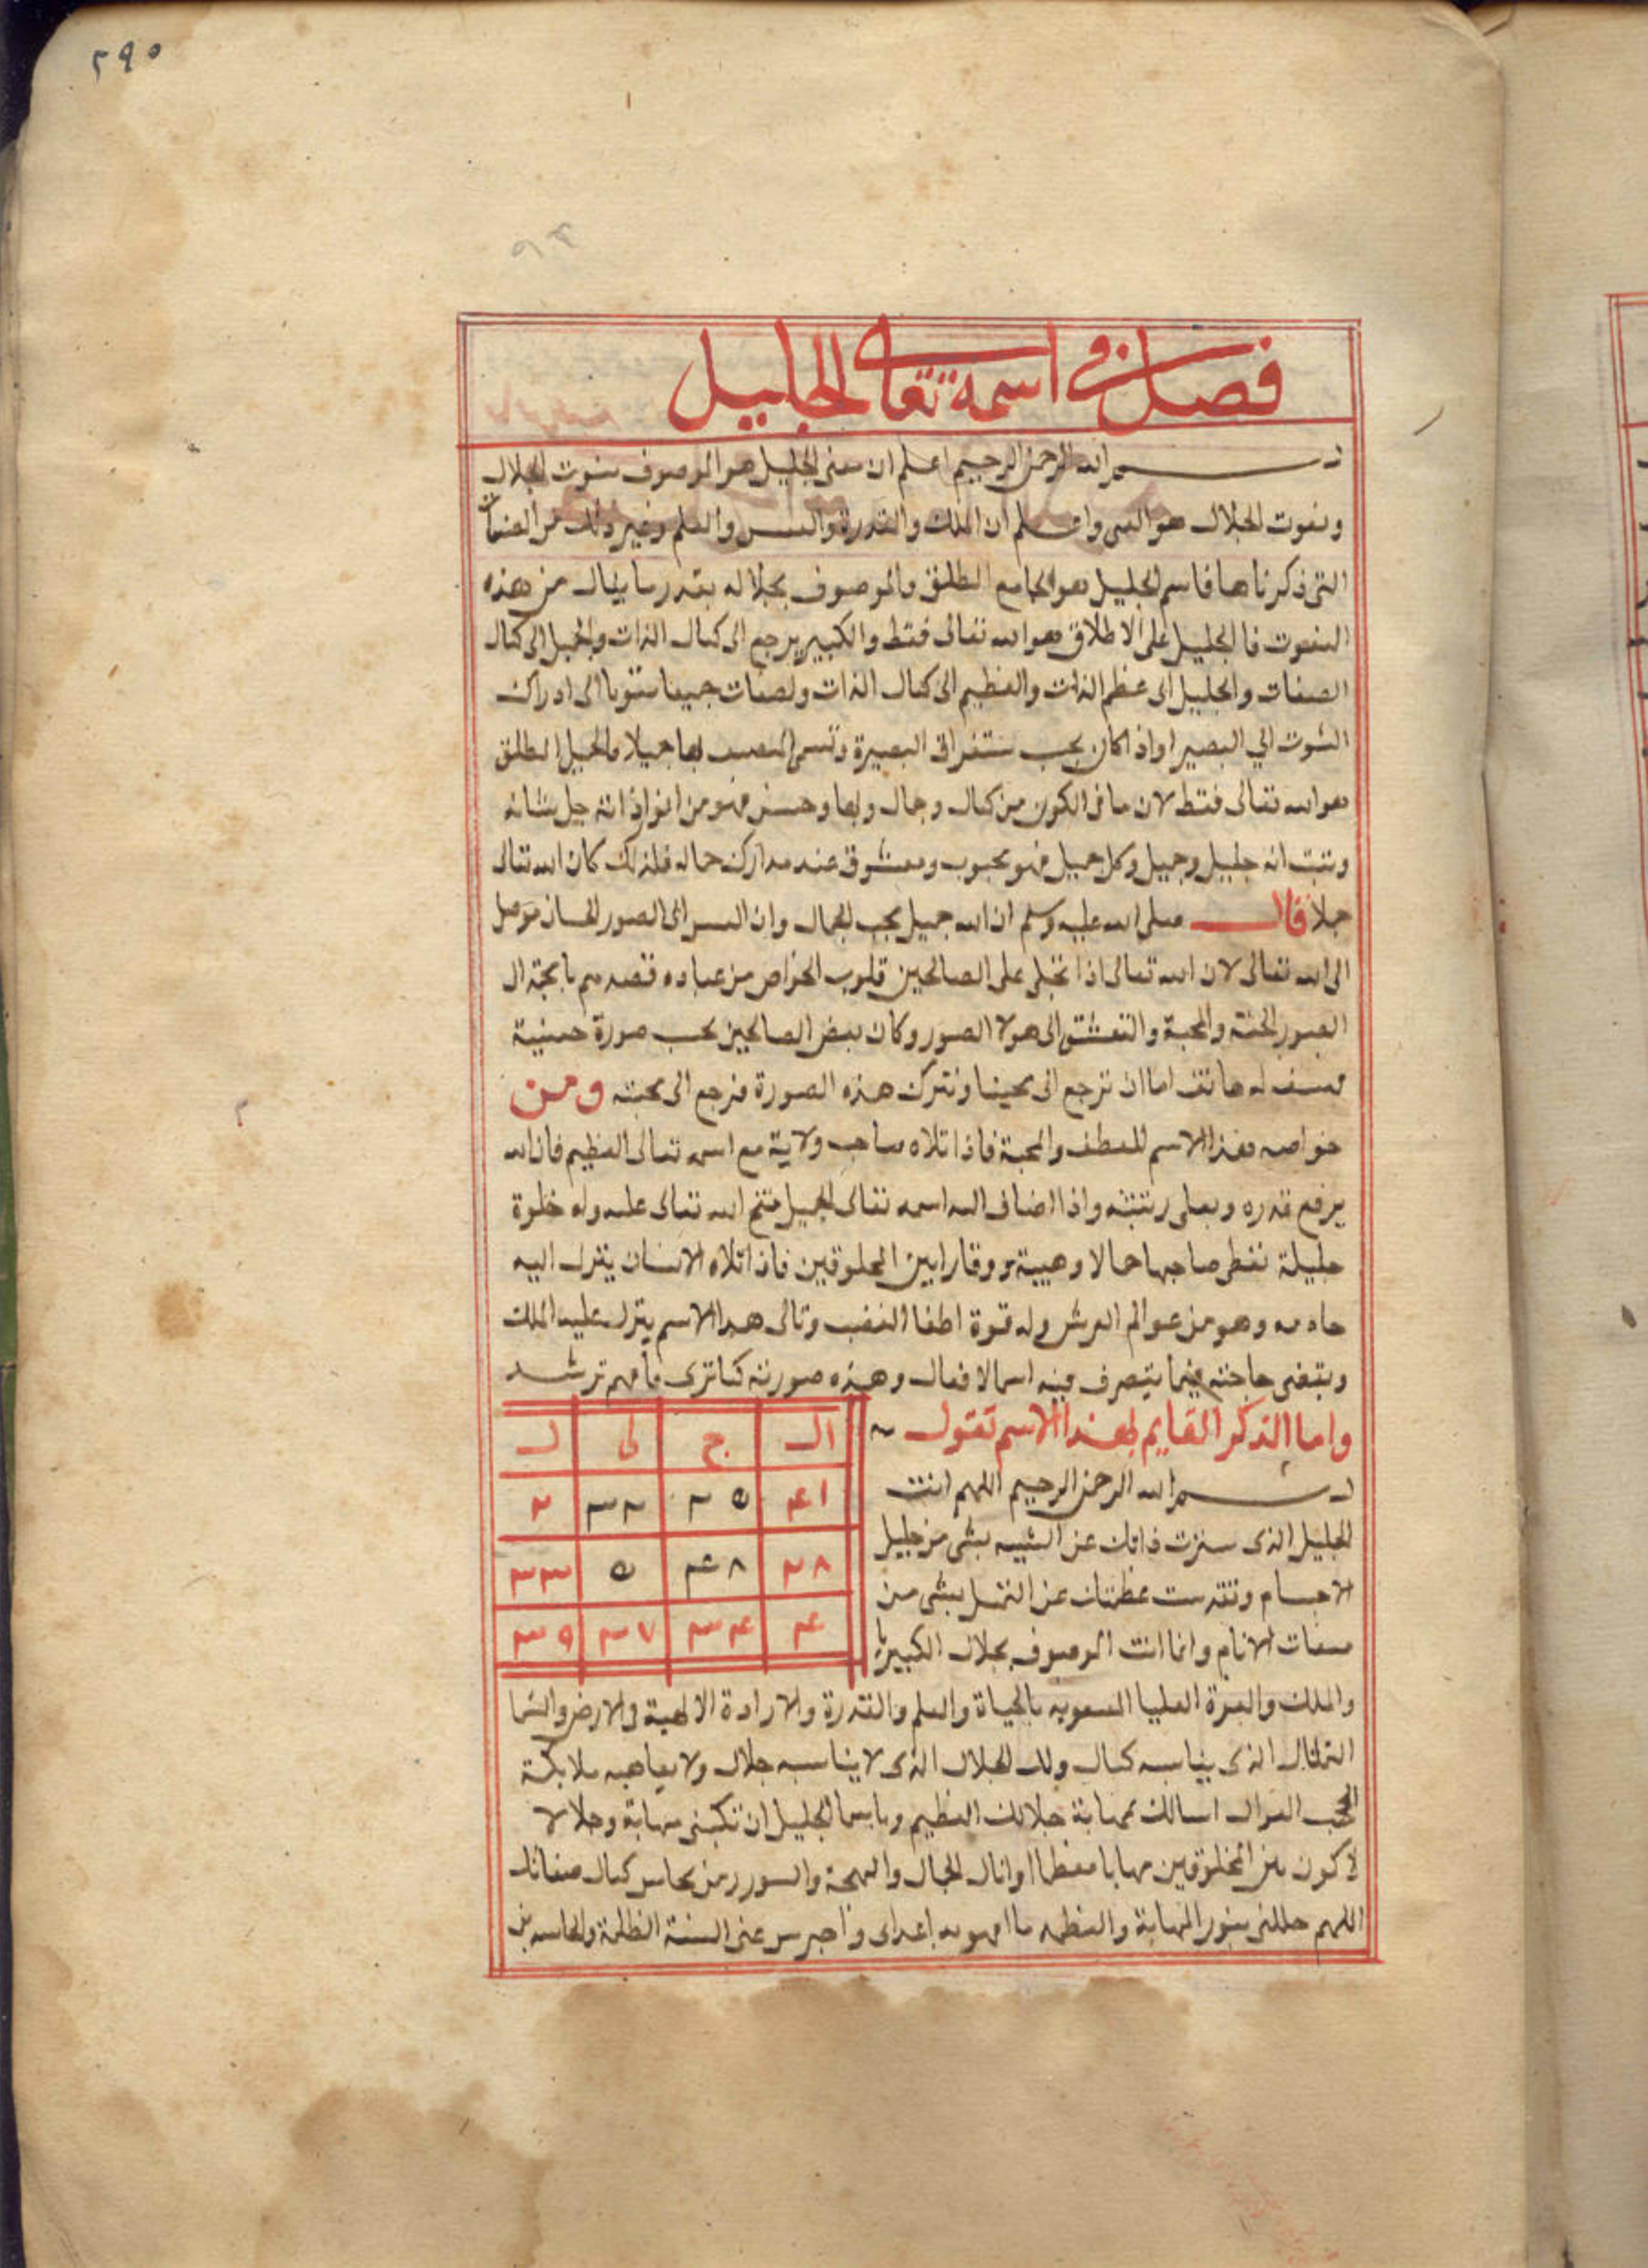 ٥٩٠
فصل في اسمه تعالى الجليل
بسم الله الرحمن الرحيم اعلم ان معنى الجليل هو الموصوف بنعوت الجلال
ونعوت الجلال هو واعلم ان الملك والقدرة والعلم وغير ذلك من الصفات
التى ذكرناها فاسم الجليل هو الجامع المطلق والموصوف بجلاله بقدر ما ينال من هذه
النعوت فالجليل على الاطلاق هو الله تعالى فقط والكبير يرجع الى كمال الذات والجميل الى كمال
الصفات والجليل الى عظم الذات والعظيم الى كمال الذات ولصفات جميعا الى ادراك
البصيرة لها جميلا فالجميل المطلق
هو الله تعالى فقط لان ما فى الكون من كمال وجمال وبها وحسن فهو من انوار ذاته جل شانه
وتبت انه جليل وجميل وكل جميل فهو محبوب ومعشوق عند مدارك جماله فلذلك كان الله تعالى
قال صلى الله عليه وسلم ان الله جميل يحب الجمال وان الى الصور الحسان موصل
الى الله تعالى لان الله تعالى اذا تجلى على الصالحين قلوب الخواص من عباده
والمحبة والتعشق الى هولا الصور وكان بعض الصالحين يحب صورة حسنية
له هاتف اما ان ترجع الى محبتنا وتترك هذه الصورة فرجع الى محبته ومن
خواصه هذا الاسم للعطف والمحبة فاذا تلاه صاحب ولاية مع اسمه تعالى العظيم فان الله
يرفع قدره ويعلى رتبته واذا اضاف اليه اسمه تعالى الجميل فتح الله تعالى عليه وله خلوة
جليلة تعطى صاحبها جمالا وهيبة ووقارا بين المخلوقين فاذا تلاه الانسان ينزل اليه
وهو من عوالم العرش وله قوة اطفا الغضب وتالى هذا الاسم ينزل عليه الملك
ويقضى حاجته فيما يتصرف فيه اسما الافعال وهذه صورته كما ترى فافهم ترشد
ال ج لى ل
٤١ ٣٥ ٣٢ ٢
٢٨ ٤٨ ٥ ٣٣
٤ ٣٤ ٣٧ ٣٩
واما الذكر القايم بهذا الاسم تقول
بسم الله الرحمن الرحيم اللهم انت
الجليل الذى ذاتك عن الشبيه بشى من جليل
الاجسام وتقدست عظمتك عن التمثل بشى من
صفات الانام وانما انت الموصوف بجلال الكبريا
والملك والعزة العليا بالحياة والعلم والقدرة والارادة الالهية فى الارض والسما
الذى يناسبه كمال ولك الجلال الذى لا يناسبه جلال ولا ملايكة
الحجب اسالك بمهابة جلالك العظيم وباسمك الجليل ان تكسنى مهابة وجلالا
لاكون بين المخلوقين مهابا معظما الجمال والبهجة والسرور من محاسن كمال صفاتك
اللهم جللنى بنور المهابة والعظمه اعداى واخرس عنى السنة الظلمة والحاسدين